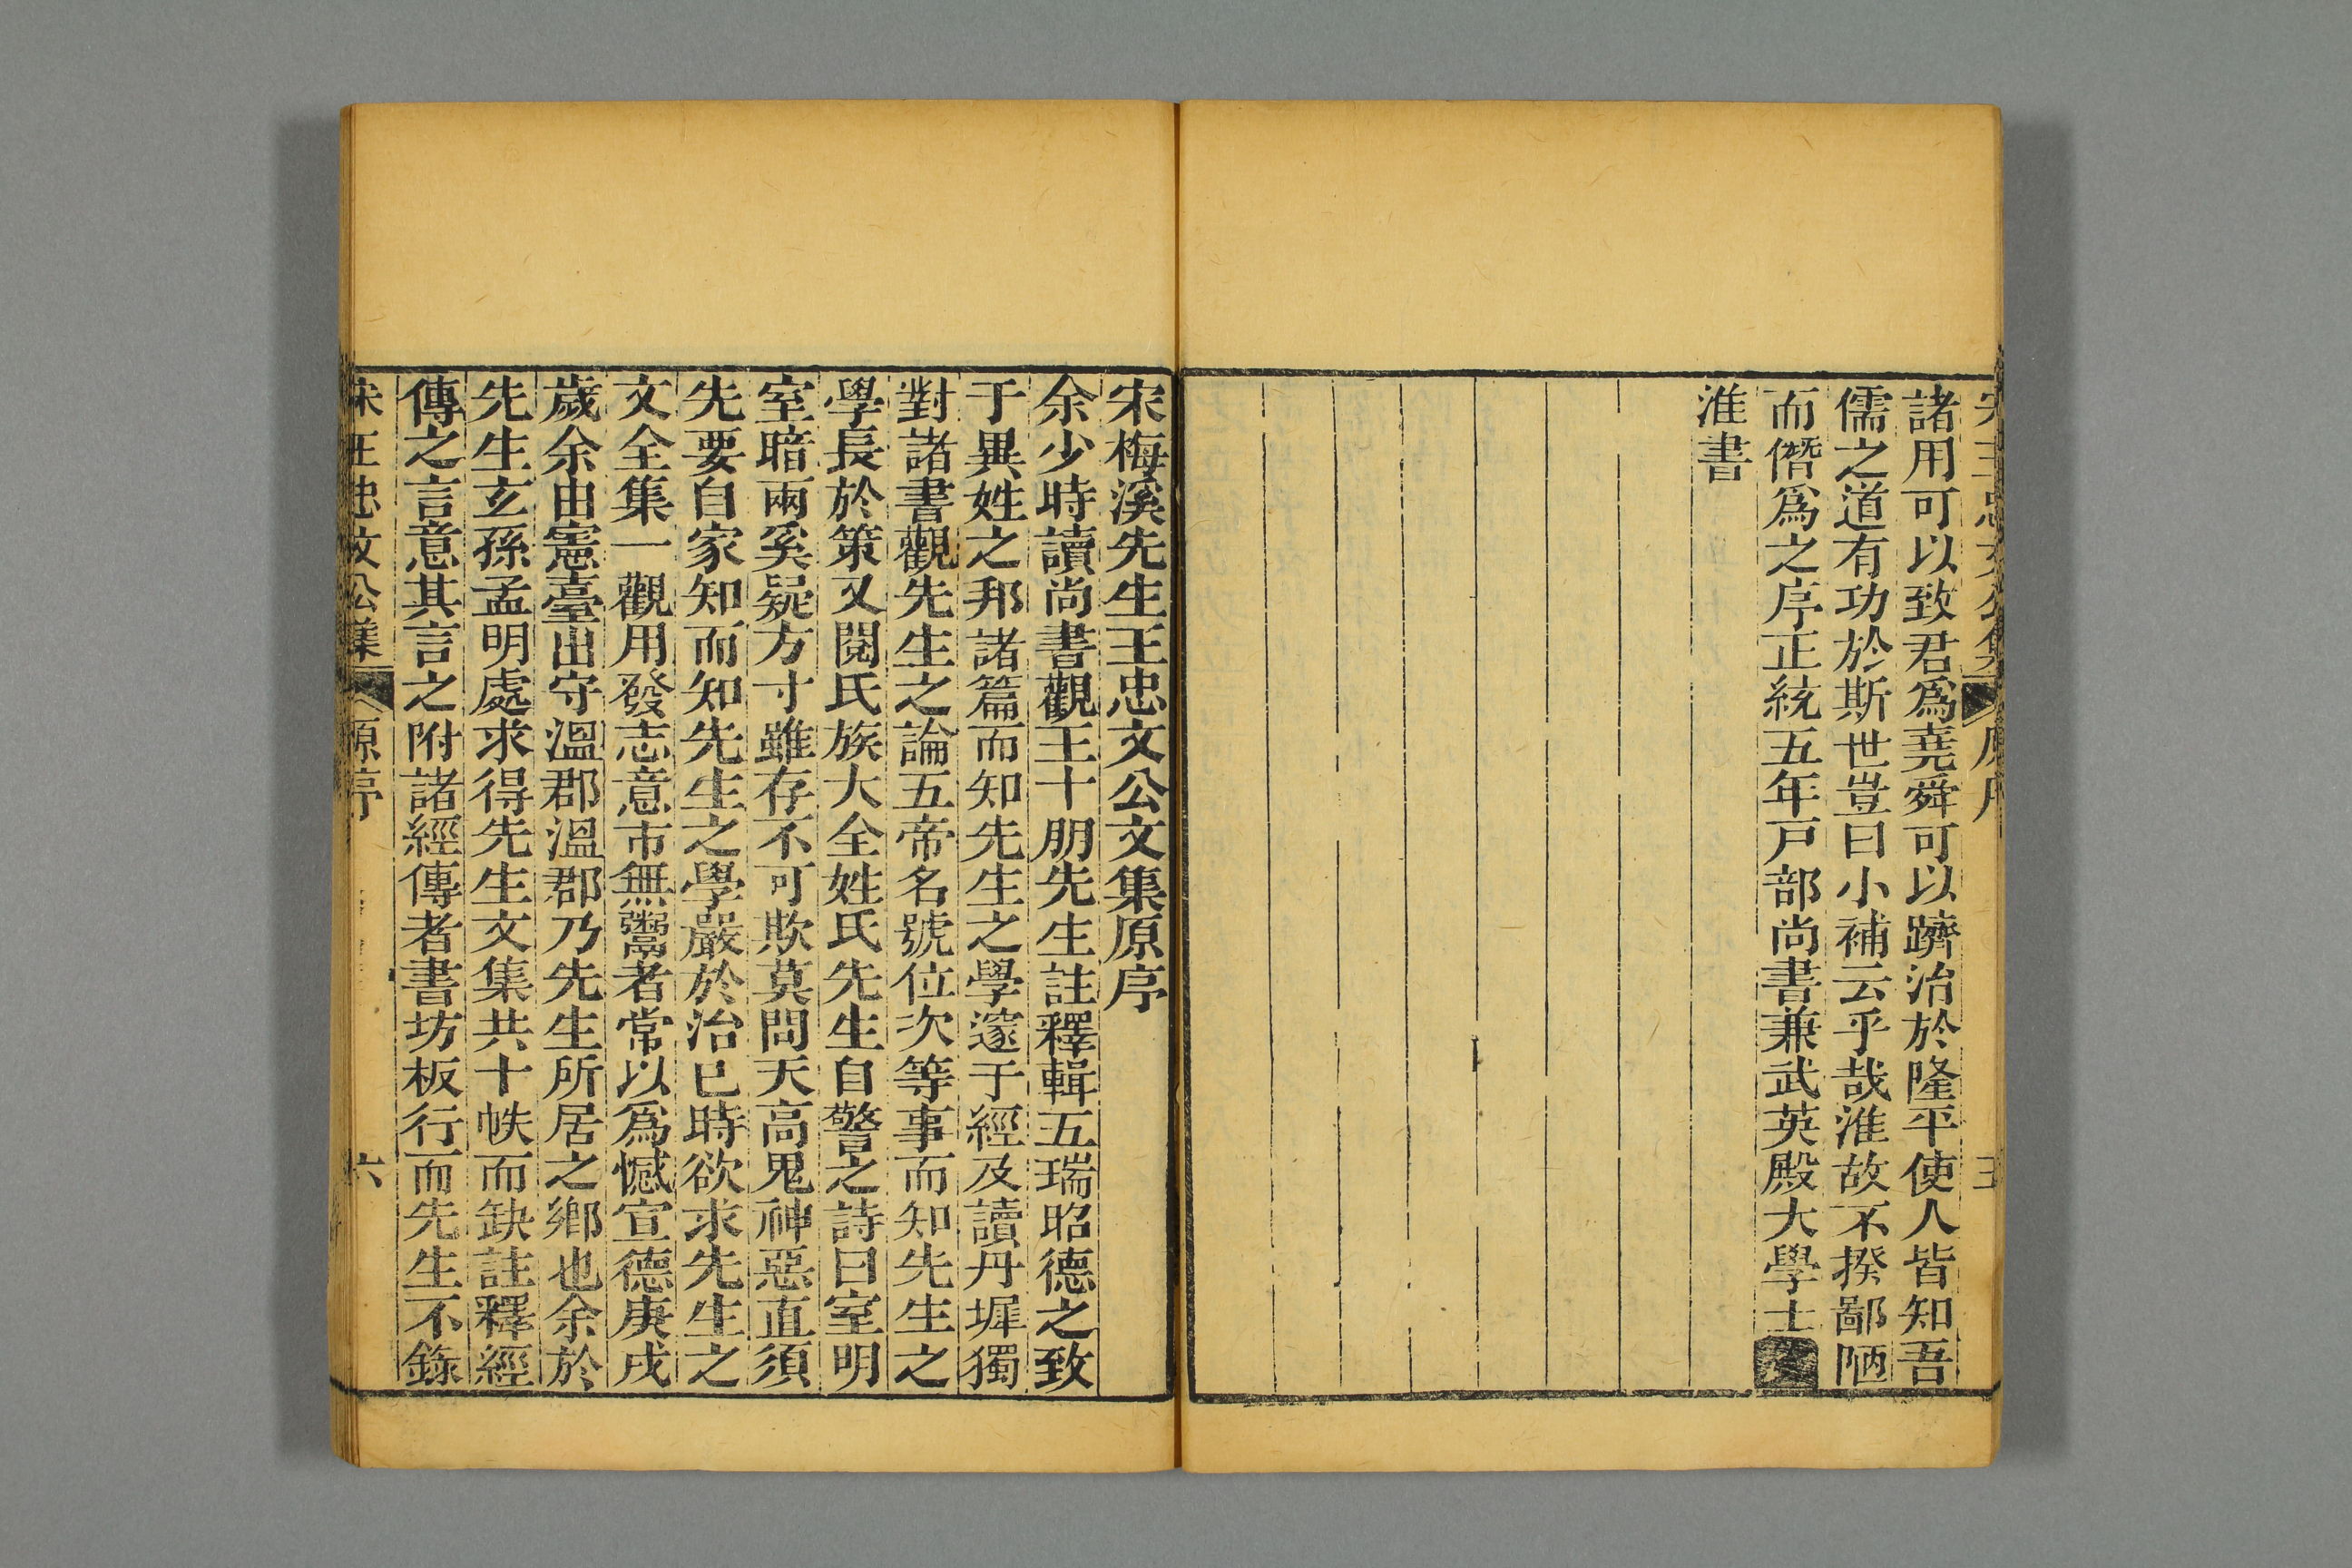 諸用可以致君爲堯舜可以躋治於隆平使人皆知吾
儒之道有功於斯世豈曰小補云乎哉淮故不揆鄙陋
而僭爲之序正統五年戸部尚書兼武英殿大學士
淮書
宋梅溪先生王忠文公文集原序
余少時讀尚書觀王十朋先生註釋輯五瑞昭德之致
于異姓之邦諸篇而知先生之學邃于經及讀丹墀獨
對諸書觀先生之論五帝名號位次等事而知先生之
學長於策又閱氏族大全姓氏先生自警之詩曰室明
室暗兩奚疑方寸雖存不可欺莫問天高鬼神惡直須
先要自家知而知先生之學嚴於治已時欲求先生之
文全集一觀用發志意市無鬻者常以爲憾宣德庚戌
歲余由憲臺出守溫郡溫郡乃先生所居之鄉也余於
先生玄孫孟明處求得先生文集共十帙而缺註釋經
傳之言意其言之附諸經傳者書坊板行而先生不錄
宋王忠文公集 原序 六